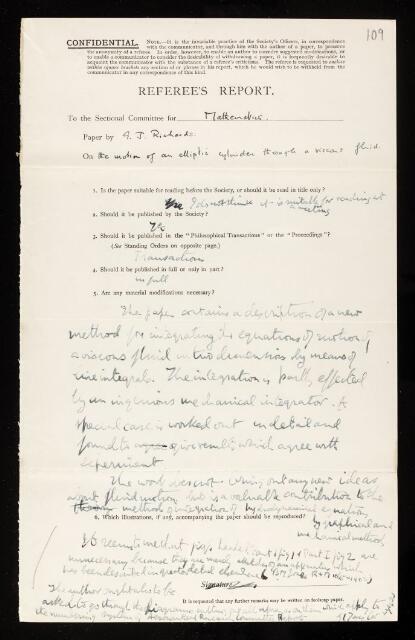 109
CONFIDENTIAL. NOTE.—It is the invariable practice of the Society's Officers, in correspondence
with the communicator, and through him with the author of a paper, to preserve
the anonymity of a referee. In order, however, to enable an author to consider suggested modifications, or
to enable a communicator to consider the desirability of withdrawing a paper, it is frequently desirable to
acquaint the communicator with the substance of a referee's criticisms. The referee is requested to enclose
within square brackets any section of or phrase in his report, which he would wish to be withheld from the
communicator in any correspondence of this kind.
REFEREE'S REPORT.
To the Sectional Committee for Mathematics.
Paper by G. J. Richards.
On the motion of an elliptic cylinder through a viscous fluid.
1. Is the paper suitable for reading before the Society, or should it be read in title only?
I do not think it is suitable for reading at
meeting
2. Should it be published by the Society?
Yes
3. Should it be published in the "Philosophical Transactions" or the "Proceedings"?
(See Standing Orders on opposite page.)
Transactions
4. Should it be published in full or only in part?
in full
5. Are any material modifications necessary?
The paper contains a description of a new
method for integrating the equations of motion of
a viscous fluid in two dimensions by means of
line integrals. The integration is partly effected
by an ingenious mechanical integrator. A
special case is worked out in detail and
found to give results which agree with
experiment
The work does not bring out any new ideas
about fluid motion but is a valuable contribution to the
methods of integration of hydrodynamical equations
by graphical and
mechanical methods
6. Which illustrations, if any, accompanying the paper should be reproduced?
It seems to me that figs. 1 and 2
unnecessary because they are merely sketches of an apparatus which
has been described in great detail elsewhere
Signature
It is requested that any further remarks may be written on foolscap paper.
The author ought also to be
asked to go through